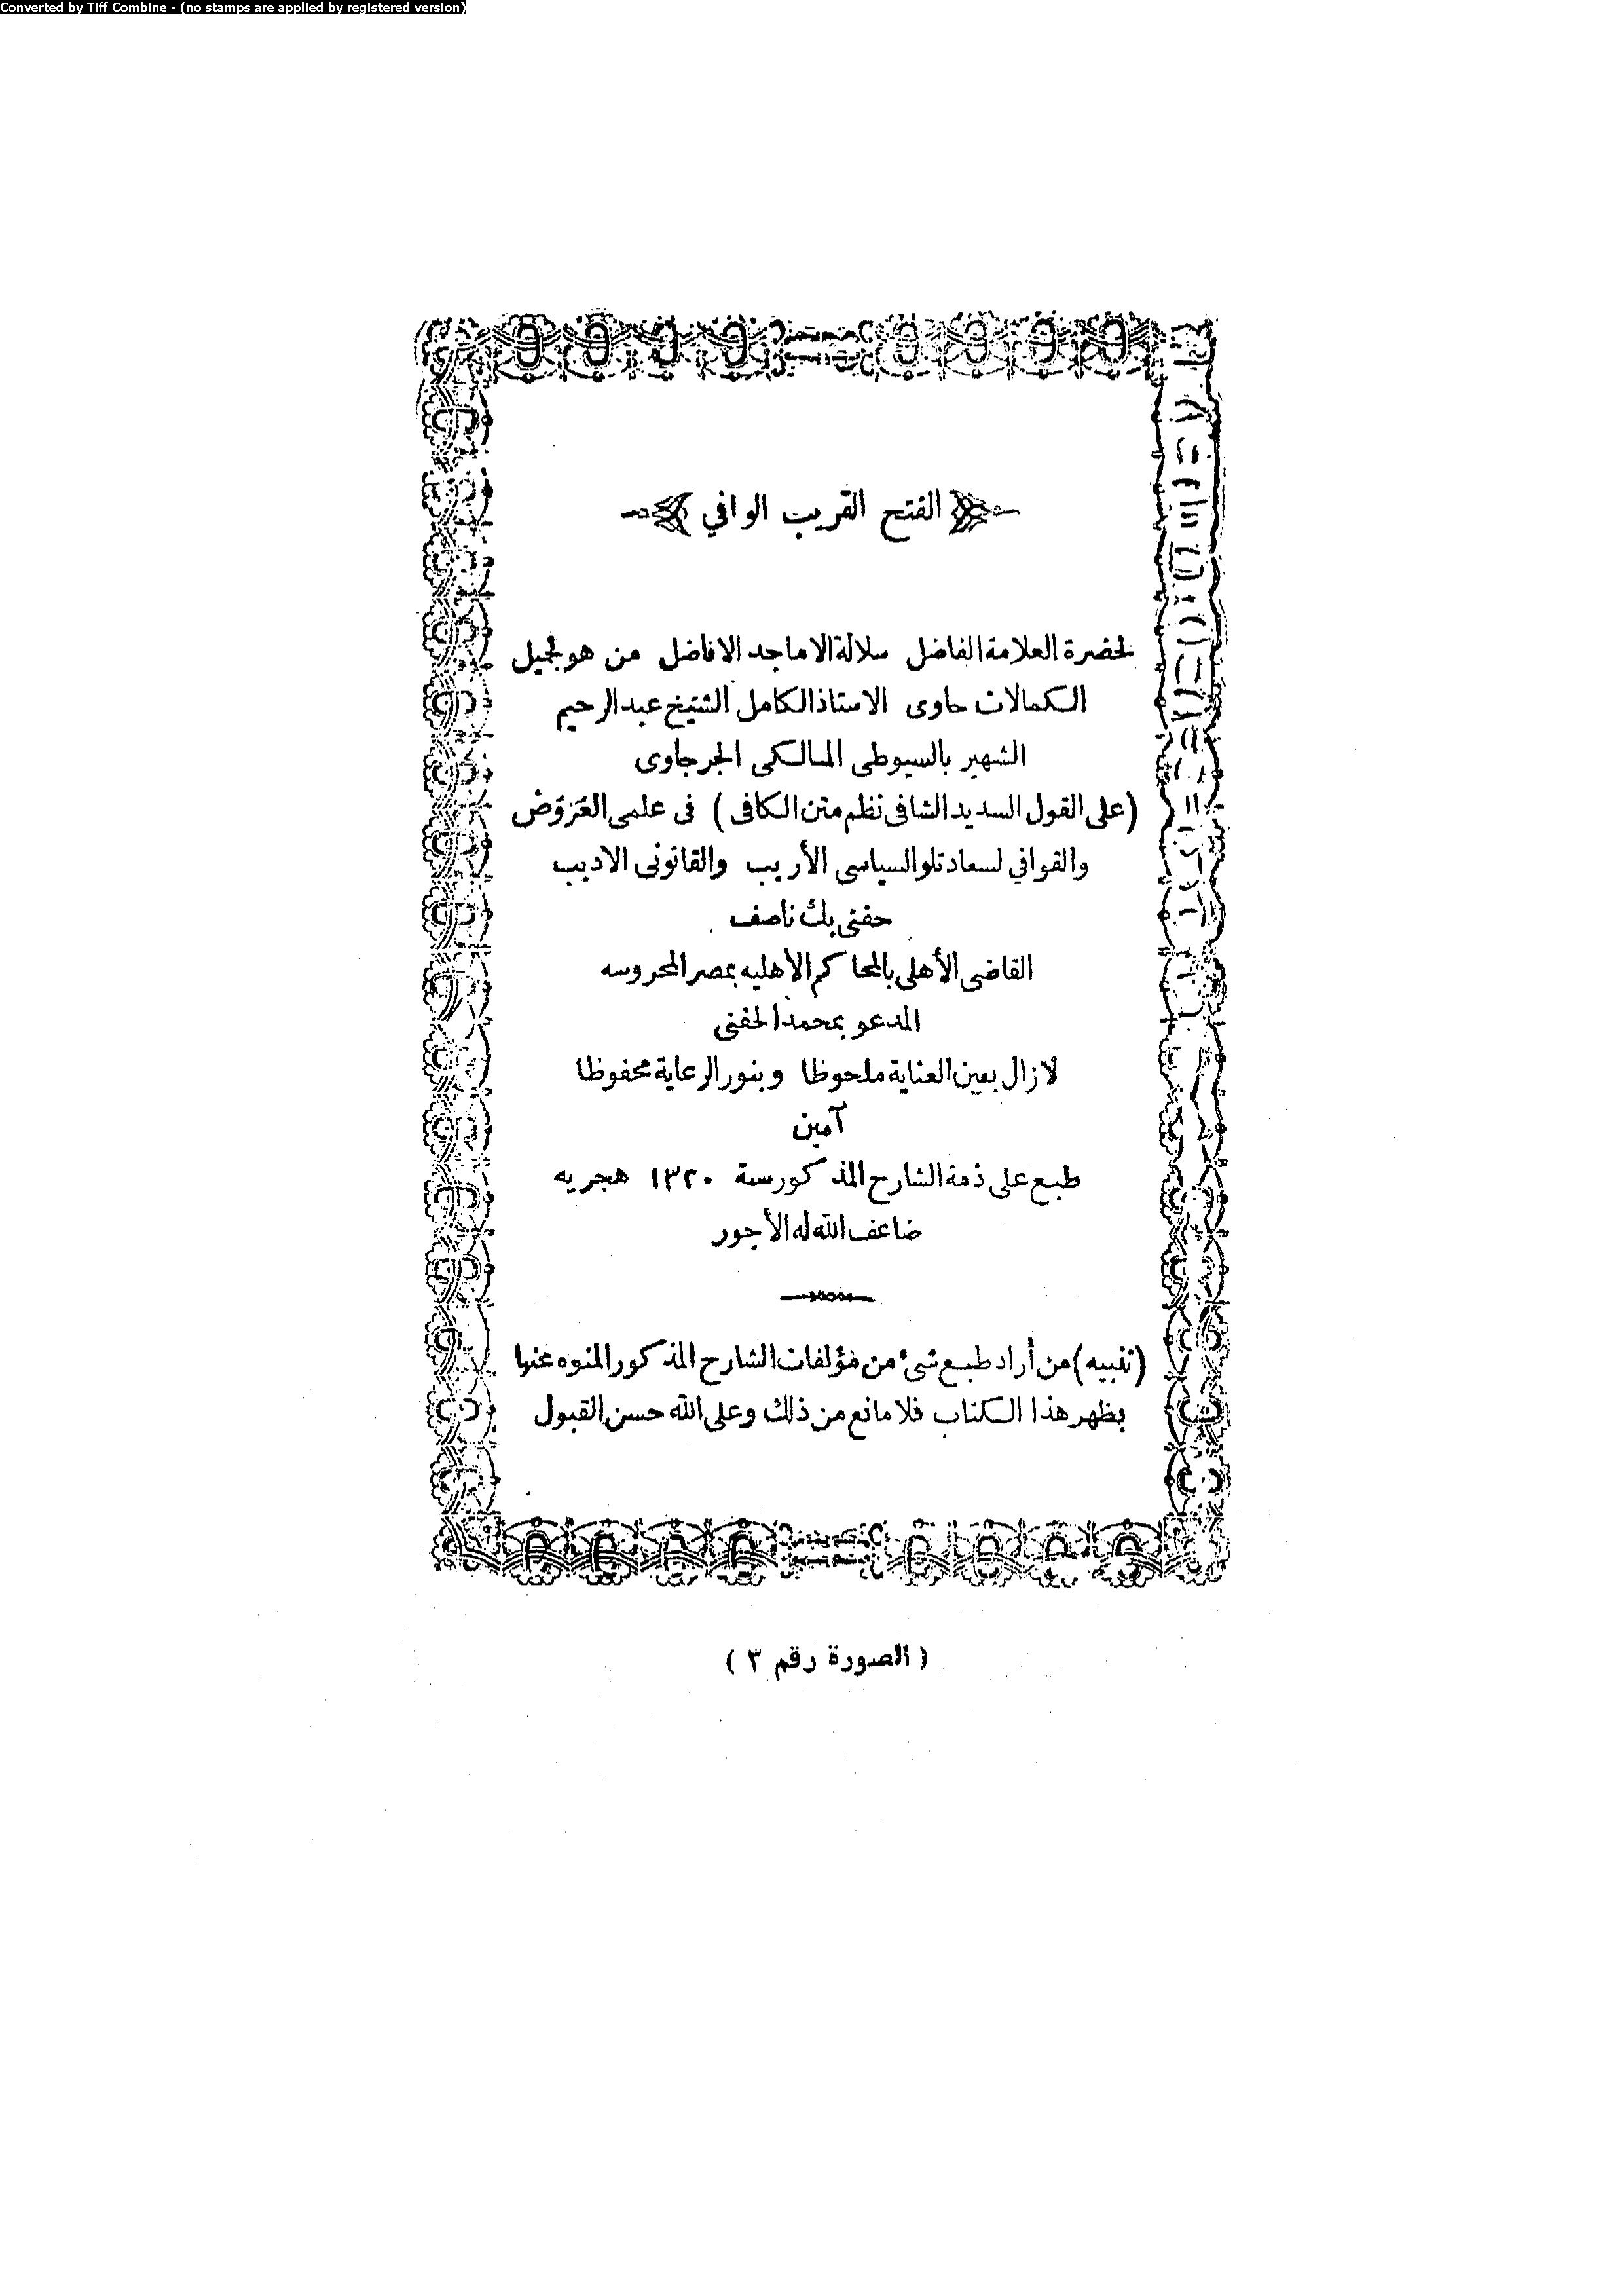 Converted by Tiff Combine - (no stamps are applied by registered version)
الفتح القريب الوافي
لحضرة العلامة الفاضل سلالة الاماجد الافاضل من هو لجميل
الكمالات حاوى الاستاذ الكامل الشيخ عبد الرحيم
الشهير بالسيوطى المالكى الجرجاوى
(على القول السديد الشافى نظم متن الكافى) فى علمى العَرُوض
والقوافي لسعادتلو السياسى الأريب والقانونى الاديب
حفنى بك ناصف
القاضى الأهلى بالمحاكم الأهليه بمصر المحروسه
المدعو بمحمد الحفنى
لازال بعين العناية ملحوظا وبنور الرعاية محفوظا
آمين
طبع على ذمة الشارح المذكور سنة ١٣٢٠ هجريه
ضاعف الله له الأجور
(تنبيه) من أراد طبع شىء من مؤلفات الشارح المذكور المنوه عنها
بظهر هذا الكتاب فلا مانع من ذلك وعلى الله حسن القبول
( الصورة رقم ٣ )